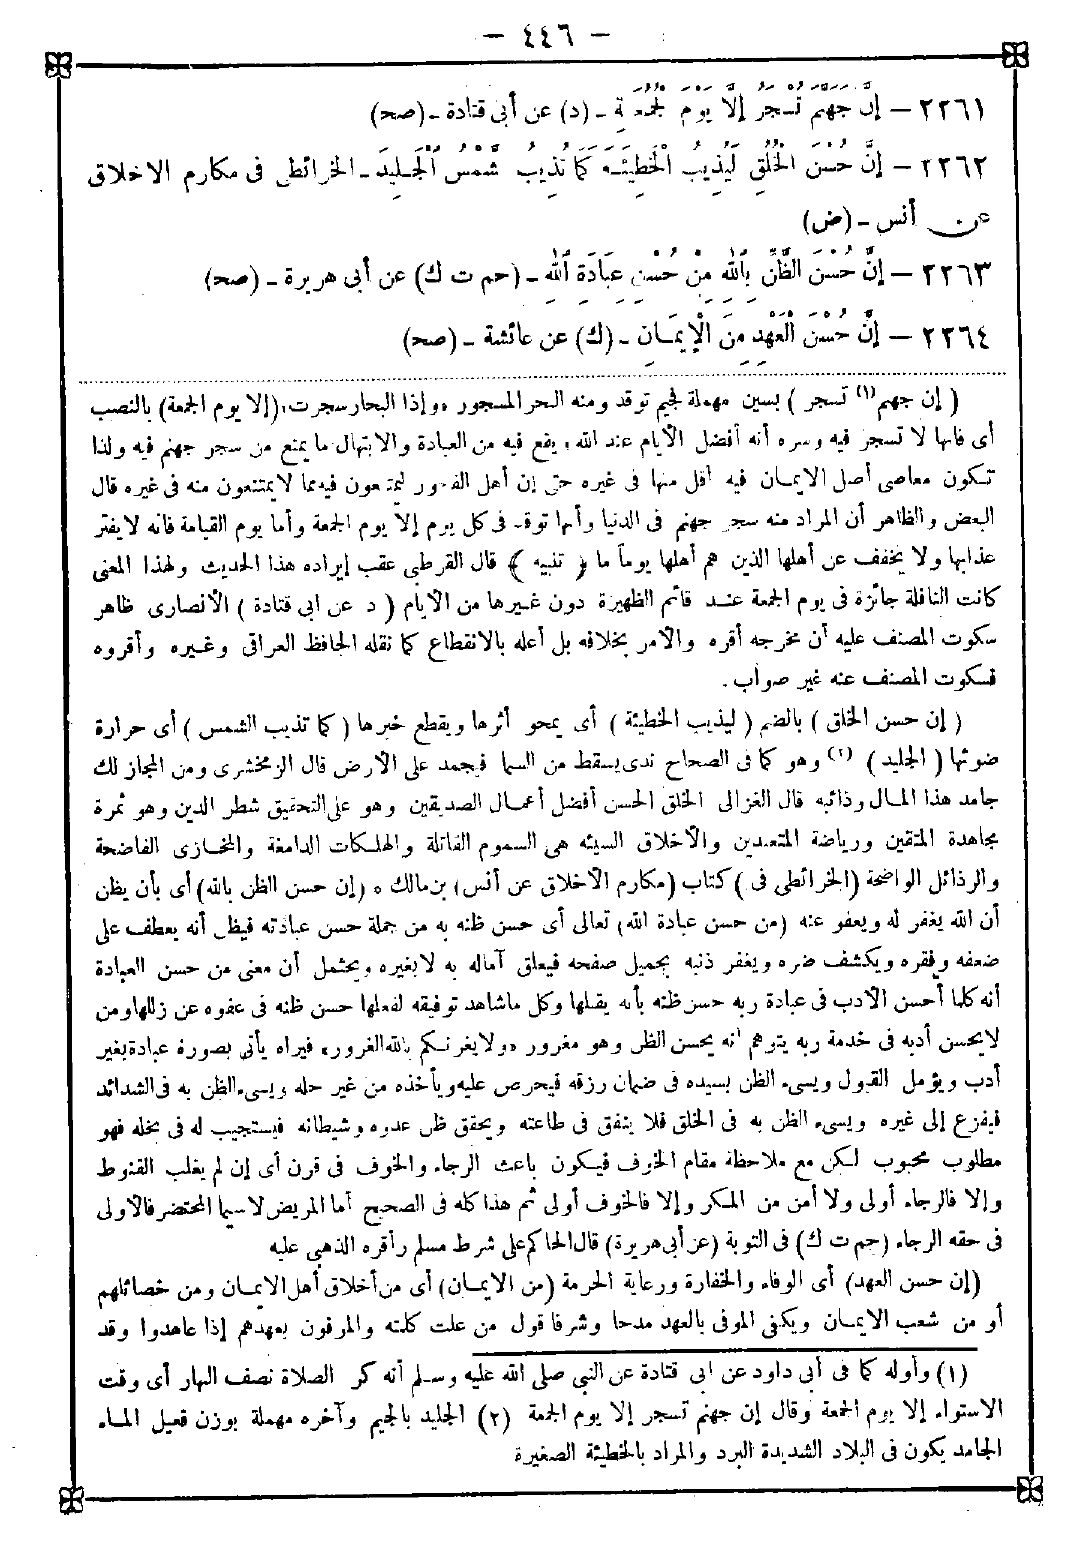 — ٤٤٦ —
٢٢٦١ — إِنَّ جَهَنَّمَ تُسْجَرُ إِلَّا يَوْمَ الْجُمُعَةِ - (د) عن أبى قتادة - (صح)
٢٢٦٢ — إِنَّ حُسْنَ الْخُلُقِ لَيُذِيبُ الْخَطِيئَةَ كَمَا تُذِيبُ الشَّمْسُ الْجَلِيدَ - الخرائطى فى مكارم الاخلاق
عن أنس - (ض)
٢٢٦٣ — إِنَّ حُسْنَ الظَّنِّ بِاللهِ مِنْ حُسْنِ عِبَادَةِ اللهِ - (حم ت ك) عن أبى هريرة - (صح)
٢٢٦٤ — إِنَّ حُسْنَ الْعَهْدِ مِنَ الْإِيمَانِ - (ك) عن عائشة - (صح)
( إن جهنم (١) تسجر ) بسين مهملة فجيم توقد ومنه البحر المسجور «وإذا البحار سجرت» (إلا يوم الجمعة) بالنصب
أى فانها لا تسجر فيه وسره أنه أفضل الأيام عند الله ، يقع فيه من العبادة والابتهال ما يمنع من سجر جهنم فيه ولذا
تكون معاصى أصل الايمان فيه أقل منها فى غيره حتى إن أهل الفجور ليمتنعون فيه مما لا يمتنعون منه فى غيره قال
البعض والظاهر أن المراد منه سجر جهنم فى الدنيا وأنها توقد فى كل يوم إلا يوم الجمعة وأما يوم القيامة فانه لا يفتر
عذابها ولا يخفف عن أهلها الذين هم أهلها يوماً ما ﴿ تنبيه ﴾ قال القرطبى عقب إيراده هذا الحديث ولهذا المعنى
كانت النافلة جائزة فى يوم الجمعة عند قائم الظهيرة دون غيرها من الأيام ( د عن ابى قتادة ) الأنصارى ظاهر
سكوت المصنف عليه أن مخرجه أقره والامر بخلافه بل أعله بالانقطاع كما نقله الحافظ العراقى وغيره وأقروه
فسكوت المصنف عنه غير صواب .
( إن حسن الخلق ) بالضم ( ليذيب الخطيئة ) أى يمحو أثرها ويقطع خبرها ( كما تذيب الشمس ) أى حرارة
ضوئها ( الجليد ) (٢) وهو كما فى الصحاح ندى يسقط من السما فيجمد على الأرض قال الزمخشرى ومن المجاز لك
جامد هذا المال وذائبه قال الغزالى الخلق الحسن أفضل أعمال الصديقين وهو على التحقيق شطر الدين وهو ثمرة
مجاهدة المتقين ورياضة المتعبدين والأخلاق السيئه هى السموم القاتلة والمهلكات الدامغة والمخازى الفاضحة
والرذائل الواضحة (الخرائطى فى) كتاب (مكارم الأخلاق عن أنس) بن مالك • (إن حسن الظن بالله) أى بأن يظن
أن الله يغفر له ويعفو عنه (من حسن عبادة الله) تعالى أى حسن ظنه به من جملة حسن عبادته فيظن أنه يعطف على
ضعفه وفقره ويكشف ضره ويغفر ذنبه بجميل صفحه فيعلق آماله به لا بغيره ويحتمل أن معنى من حسن العبادة
أنه كلما أحسن الأدب فى عبادة ربه حسن ظنه بأنه يقبلها وكل ما شاهد توفيقه لفعلها حسن ظنه فى عفوه عن زللها ومن
لا يحسن أدبه فى خدمة ربه يتوهم أنه يحسن الظن وهو مغرور «ولا يغرنكم بالله الغرور» فيراه يأتى بصورة عبادة بغير
أدب ويؤمل القبول ويسىء الظن بسيده فى ضمان رزقه فيحرص عليه ويأخذه من غير حله ويسىء الظن به فى الشدائد
فيفزع إلى غيره ويسىء الظن به فى الخلق فلا ينفق فى طاعته ويحقق ظن عدوه وشيطانه فيستجيب له فى بخله فهو
مطلوب محبوب لكن مع ملاحظة مقام الخوف فيكون باعث الرجاء والخوف فى قرن أى إن لم يغلب القنوط
وإلا فالرجاء أولى ولا أمن من المكر وإلا فالخوف أولى ثم هذا كله فى الصحيح أما المريض لا سيما المحتضر فالأولى
فى حقه الرجاء (حم ت ك) فى التوبة (عن أبى هريرة) قال الحاكم على شرط مسلم وأقره الذهبى عليه
(إن حسن العهد) أى الوفاء والخفارة ورعاية الحرمة (من الايمان) أى من أخلاق أهل الايمان ومن خصائلهم
أو من شعب الايمان ويكفى الموفى بالعهد مدحا وشرفا قول من علت كلمته والموفون بعهدهم إذا عاهدوا وقد
(١) وأوله كما فى أبى داود عن ابى قتادة عن النبى صلى الله عليه وسلم أنه كره الصلاة نصف النهار أى وقت
الاستواء إلا يوم الجمعة وقال إن جهنم تسجر إلا يوم الجمعة (٢) الجليد بالجيم وآخره مهملة بوزن فعيل الماء
الجامد يكون فى البلاد الشديدة البرد والمراد بالخطيئة الصغيرة